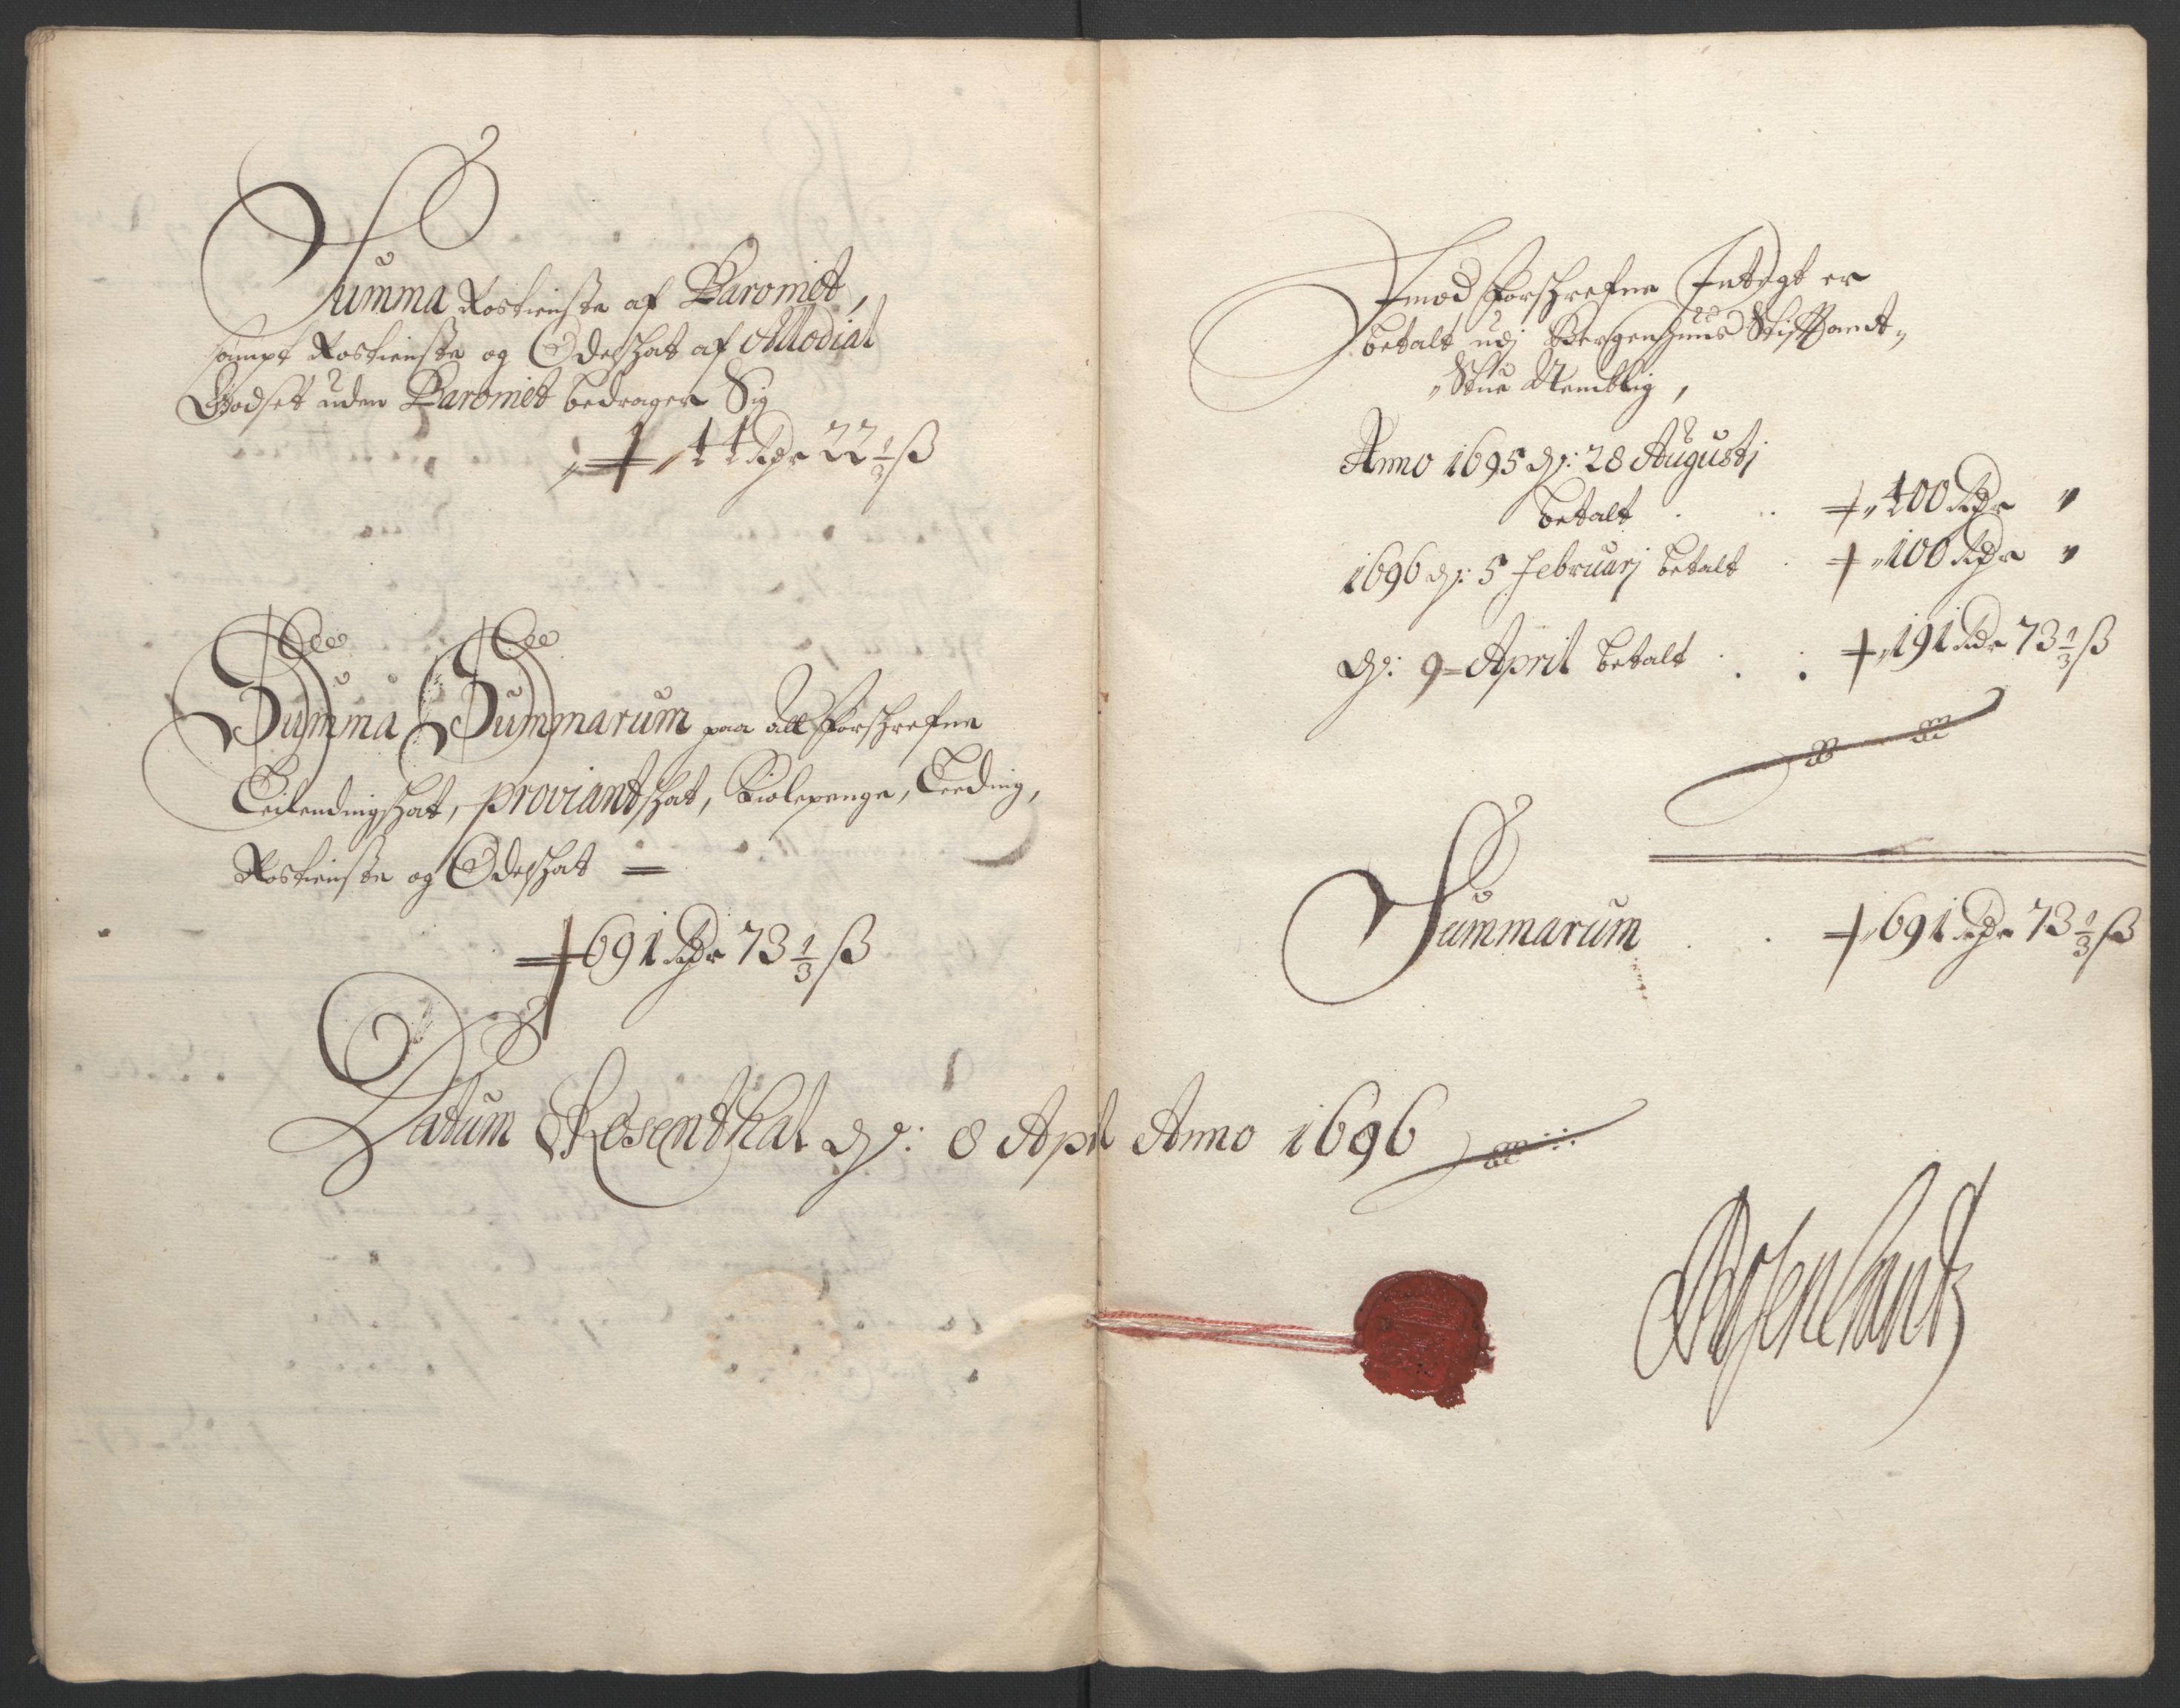 Summa Rostienste af Baroniet,
sampt Rostienste og Odelschat af Allodial
Godset uden Baroniet bedrager Sig
44 Rdr 22 1/3 ß
Summa Summarum paa all forschrefne
Leilendingschat, proviantschat, Biolepenge, Leeding,
Rostienste og Odelschat =
691 Rdr 73 1/3 ß
Datum Rosenthal dj: 8 April Anno 1696
Imod forschrefne Indtegt er
betalt udj Bergenhuus Stiftamt-
Stue Nemblig,
Anno 1695 dj: 28 Augustj
betalt . . 400 Rdr "
1696 dj: 5 Februarj betalt . 100 Rdr "
dj: 9 April betalt . . 191 Rdr 73 1/3 ß
Summarum . . 691 Rdr 73 1/3 ß
Rosenkrantz